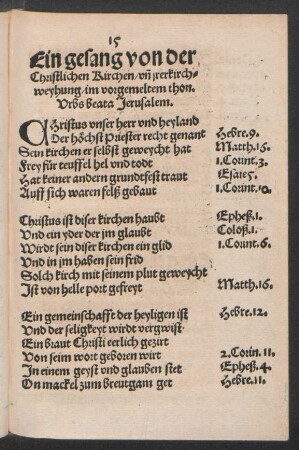 15
Ein gesang von der
Christlichen Kirchen / vñ jrer kirch-
weyhung / im vorgemeltem thon.
Vrbs beata Jerusalem.
CHristus vnser herr vnd heyland
Der höchst Priester recht genant Hebre.9.
Sein kirchen er selbst geweycht hat Matth.16.
Frey für teuffel hel vnd todt 1.Corint.3.
Hat keiner andern grundtfest traut Esaie 5.
Auff sich waren felß gebaut 1.Corint.10.
Christus ist diser kirchen haubt Epheß.1.
Vnd ein yder der jm glaubt Coloß.1.
Wirdt sein diser kirchen ein glid 1.Corint.6.
Vnd in jm haben sein frid
Solch kirch mit seinem plut geweycht
Ist von helle port gefreyt Matth.16.
Ein gemeinschafft der heyligen ist Hebre.12.
Vnd der seligkeyt wirdt vergwist
Ein braut Christi eerlich gezirt
Von seim wort geboren wirt 2.Corin.11.
In einem geyst vnd glauben stet Epheß.4.
On mackel zum breutgam get Hebre.11.